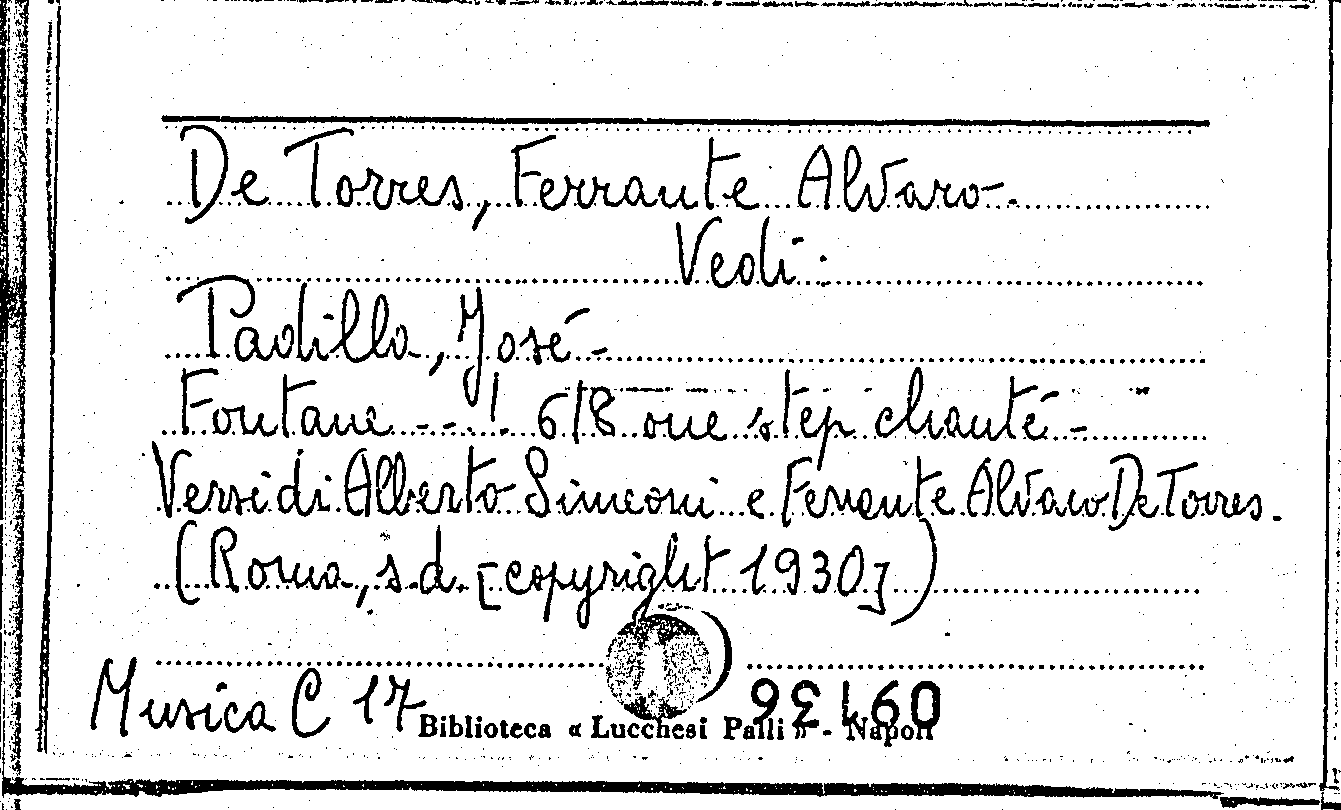 De Torres, Ferrante Alvaro.
Vedi:
Padilla, José -
Fontane ---! 6/8 one step chanté -
Versi di Alberto Simeoni e Ferrante Alvaro De Torres.
(Roma, s.d. [copyright 1930])
Musica C 17
Biblioteca « Lucchesi Palli » - Napoli